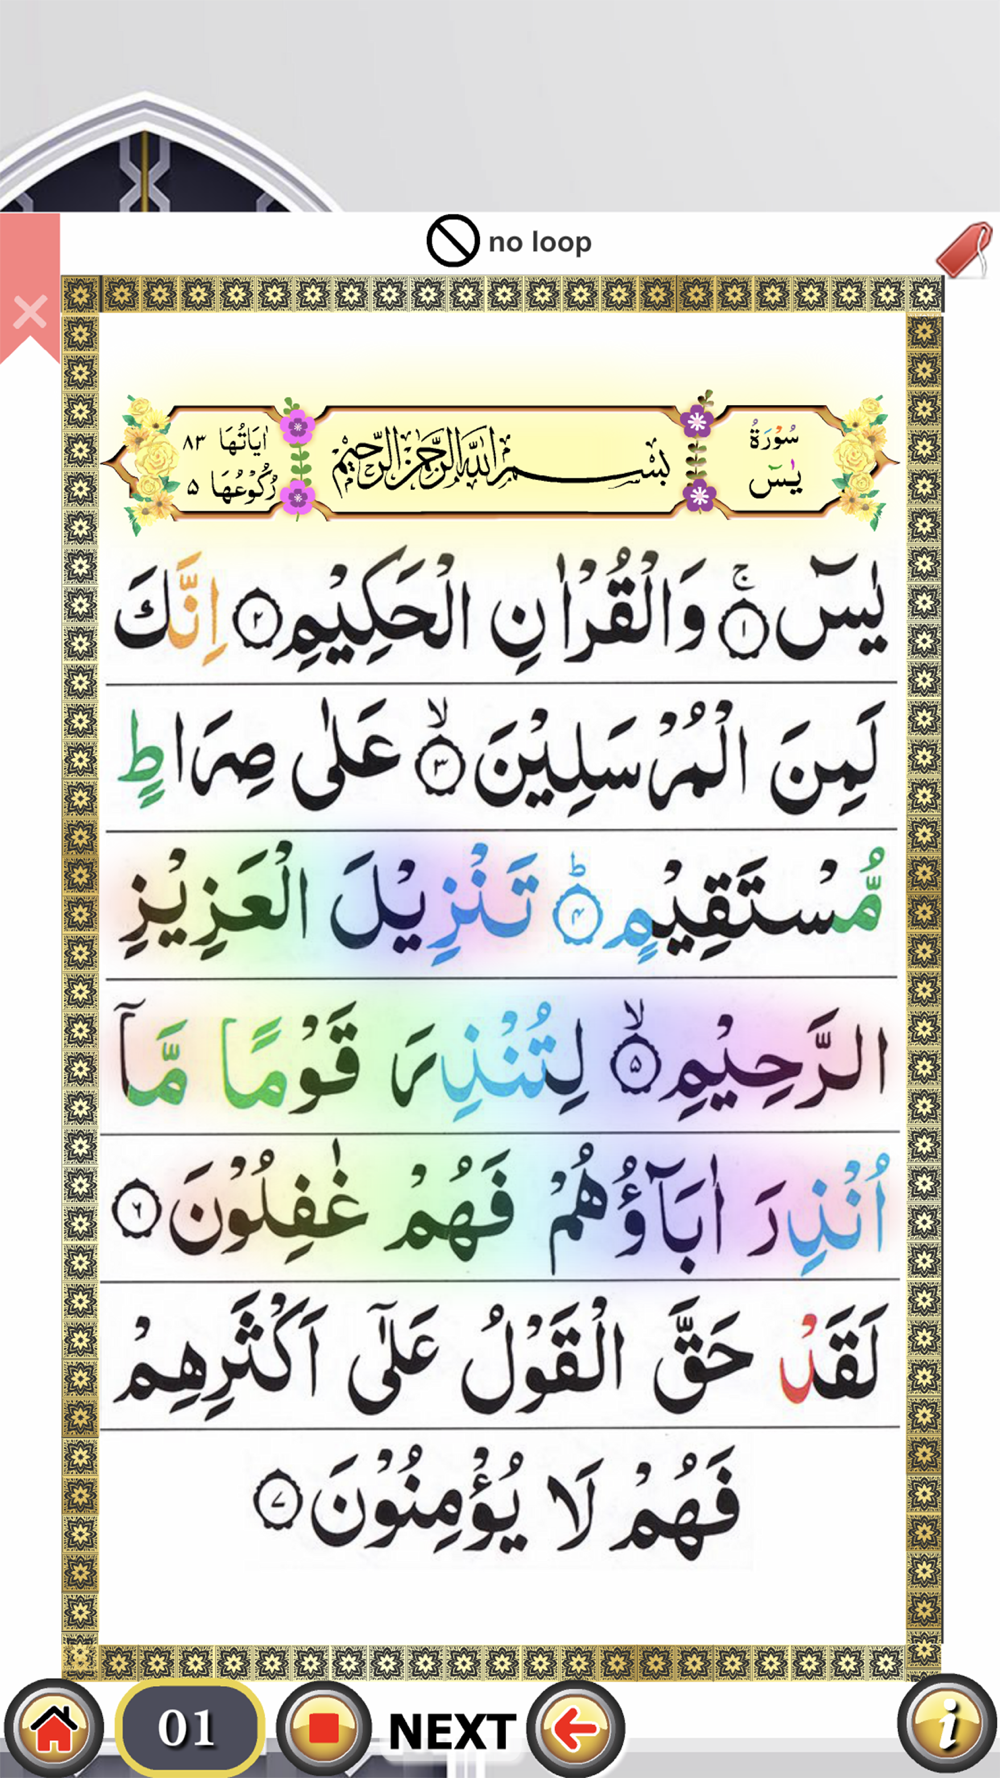 no loop
سُوْرَةُ
يٰسٓ
بسم الله الرحمن الرحيم
اٰيَاتُهَا ٨٣
رُكُوْعُهَا ٥
يٰسٓ ۚ ﴿١﴾ وَالْقُرْاٰنِ الْحَكِيْمِ ﴿٢﴾ اِنَّكَ
لَمِنَ الْمُرْسَلِيْنَ ۙ ﴿٣﴾ عَلٰى صِرَاطٍ
مُّسْتَقِيْمٍ ؕ ﴿٤﴾ تَنْزِيْلَ الْعَزِيْزِ
الرَّحِيْمِ ۙ ﴿٥﴾ لِتُنْذِرَ قَوْمًا مَّآ
اُنْذِرَ اٰبَآؤُهُمْ فَهُمْ غٰفِلُوْنَ ﴿٦﴾
لَقَدْ حَقَّ الْقَوْلُ عَلٰٓى اَكْثَرِهِمْ
فَهُمْ لَا يُؤْمِنُوْنَ ﴿٧﴾
01 NEXT i